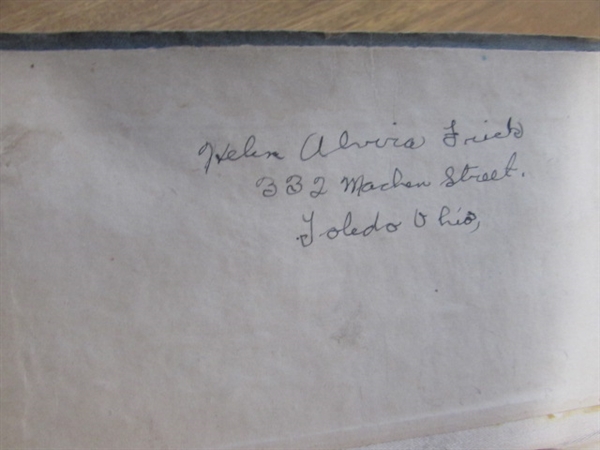 Helen Alvira Frick
332 Machen Street.
Toledo Ohio,